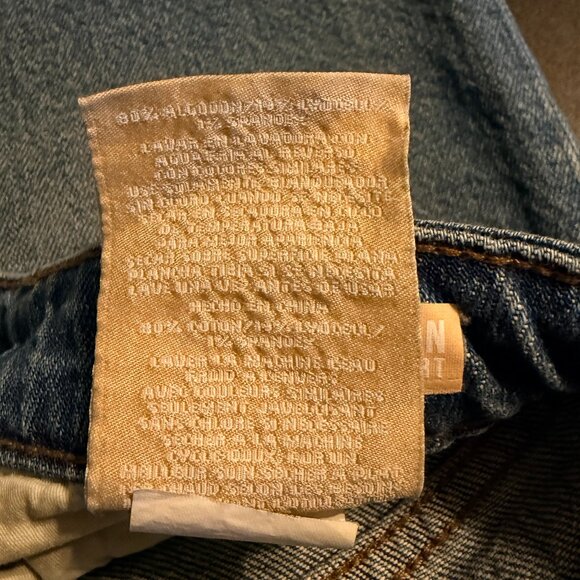 80% ALGODON/19% LYOCELL/
1% SPANDEX
LAVAR EN LAVADORA CON
AGUA FRIA AL REVES
CON COLORES SIMILARES
USE SOLAMENTE BLANQUEADOR
SIN CLORO CUANDO SE NECESITE
SECAR EN SECADORA EN CICLO
DE TEMPERATURA BAJA
PARA MEJOR APARIENCIA
SECAR SOBRE SUPERFICIE PLANA
PLANCHA TIBIA SI SE NECESITA
LAVE UNA VEZ ANTES DE USAR
HECHO EN CHINA
80% COTON/19% LYOCELL/
1% SPANDEX
LAVER A LA MACHINE L'EAU
FROID A L'ENVERS
AVEC COULEURS SIMILAIRES
SEULEMENT JAVELLISANT
SANS CHLORE SI NECESSAIRE
SECHER A LA MACHINE
CYCLE DOUX POUR UN
MEILLEUR SOIN SECHER A PLAT
SELON LES BESOIN
N
RT